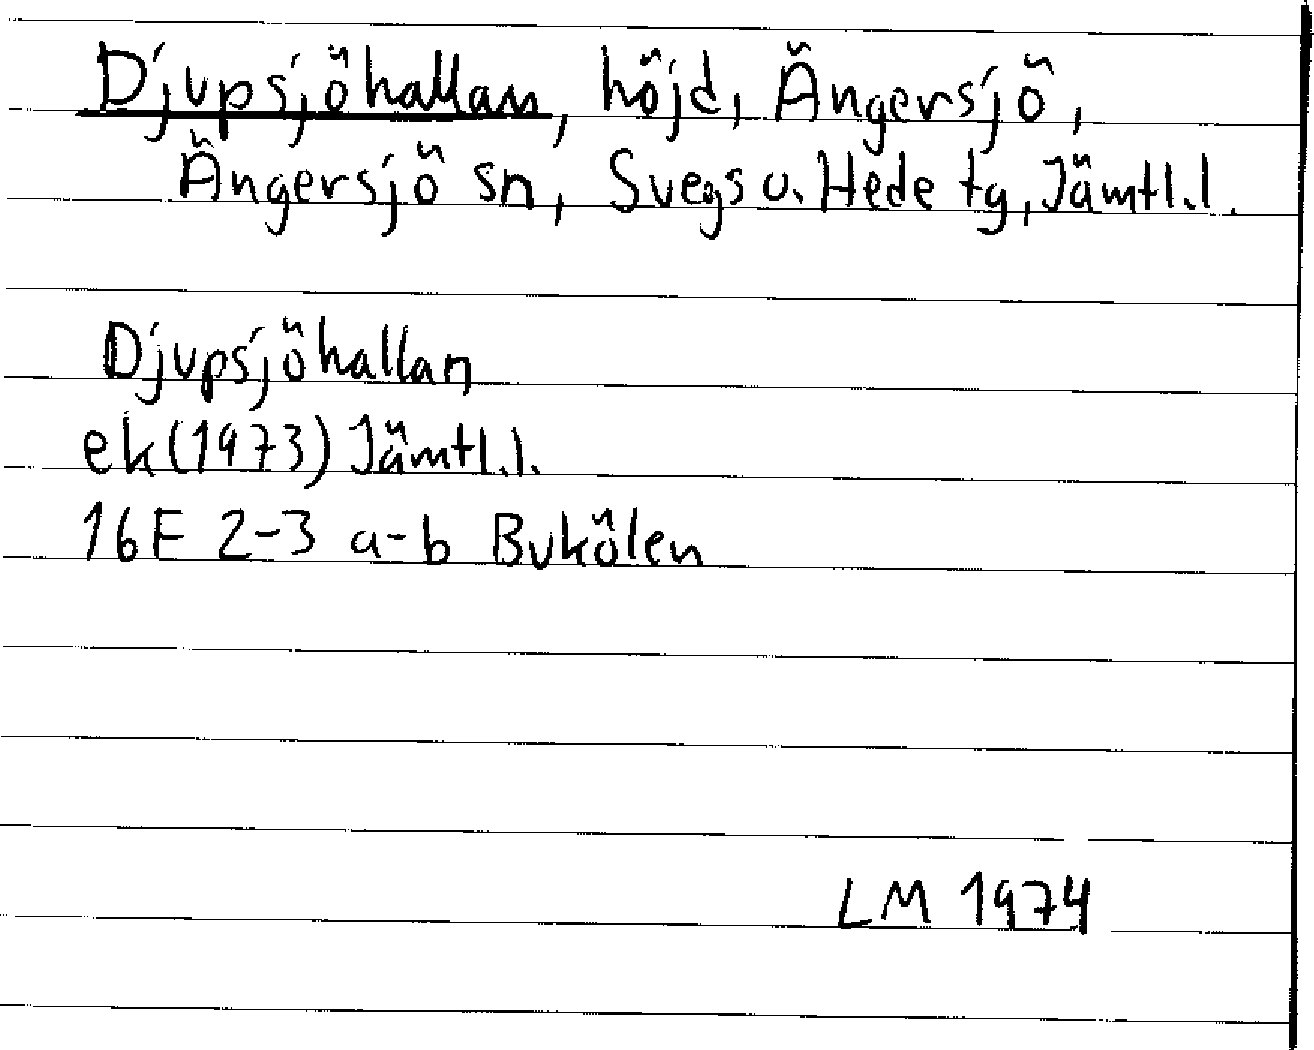 Djupsjöhallan, höjd, Ängersjö,
Ängersjö sn, Svegs o. Hede tg, Jämtl.l.
Djupsjöhallan
ek(1973) Jämtl.l.
16F 2-3 a-b Bukölen
LM 1974